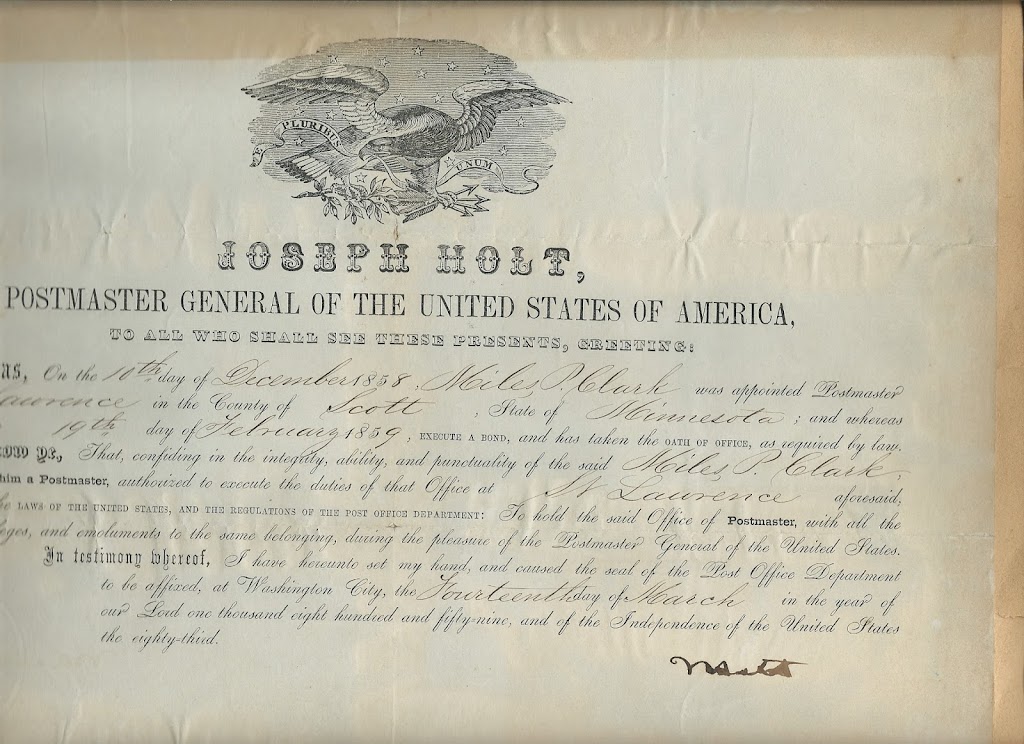 E PLURIBUS UNUM
JOSEPH HOLT,
POSTMASTER GENERAL OF THE UNITED STATES OF AMERICA,
TO ALL WHO SHALL SEE THESE PRESENTS, GREETING:
AS, On the 10th day of December 1858, Miles P. Clark was appointed Postmaster
awrence in the County of Scott, State of Minnesota; and whereas
19th day of February 1859, EXECUTE A BOND, and has taken the OATH OF OFFICE, as required by law.
OW YE, That, confiding in the integrity, ability, and punctuality of the said Miles P. Clark,
him a Postmaster, authorized to execute the duties of that Office at St Lawrence aforesaid,
he LAWS OF THE UNITED STATES, AND THE REGULATIONS OF THE POST OFFICE DEPARTMENT: To hold the said Office of Postmaster, with all the
eges, and emoluments to the same belonging, during the pleasure of the Postmaster General of the United States.
In testimony whereof, I have hereunto set my hand, and caused the seal of the Post Office Department
to be affixed, at Washington City, the Fourteenth day of March in the year of
our Lord one thousand eight hundred and fifty-nine, and of the Independence of the United States
the eighty-third.